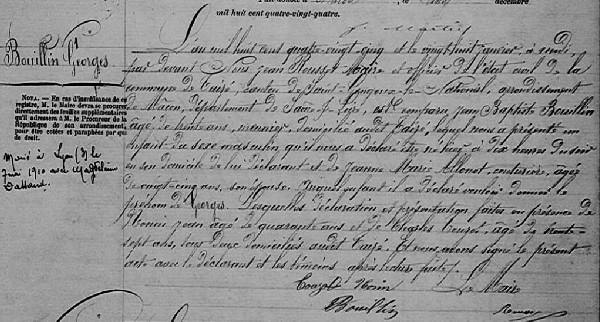 décembre
mil huit cent quatre-vingt-quatre.
Bouillin Georges
L'an mil huit cent quatre-vingt-cinq et le vingt huit janvier à
par devant Nous Jean Rousset Maire et officier de l'état civil de la
commune de Taizé, canton de Saint-Gengoux-le National, arrondissement
de Mâcon, Département de Saône-&-Loire, est Comparu Jean Baptiste Bouillin
âgé de trente ans, domicilié audit Taizé, lequel nous a présenté un
Enfant du sexe masculin qu'il nous a déclaré être né hier à Dix heures du soir
en son domicile de lui Déclarant et de Jeanne Marie couturière, âgée
de vingt-cinq ans, son épouse. auquel enfant il a déclaré vouloir donner le
prénom de Georges. Lesquelles déclaration et présentation faites en présence de
Jean âgé de quarante ans et de Charles âgé de trente
sept ans, tous deux domiciliés audit Taizé. Et nous avons signé le présent
acte avec le déclarant et les témoins après lecture faite.
Le Maire
Bouillin
NOTA. — En cas d'insuffisance de ce
registre, M. le Maire devra se procurer
directement des feuilles supplémentaires
qu'il adressera à M. le Procureur de la
République de son arrondissement,
pour être cotées et paraphées par qui
de droit.
Marié à Lyon le
Juin 1910 avec